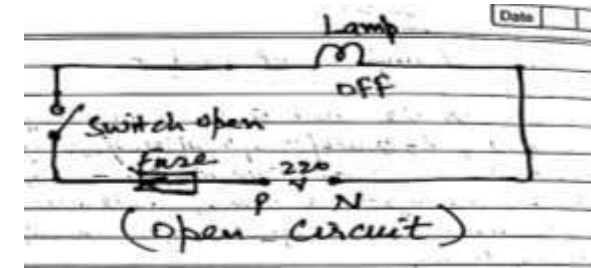 Date
Lamp
OFF
Switch open
Fuse
220
V
P N
(open circuit)